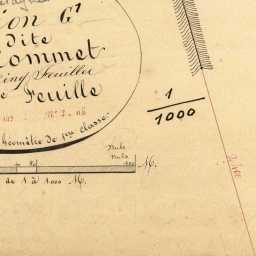 ion G¹
dite
Commet
cinq Feuilles
e Feuille
Géomètre de 1re classe.
1
1000
M.
de 1 à 1000 M.